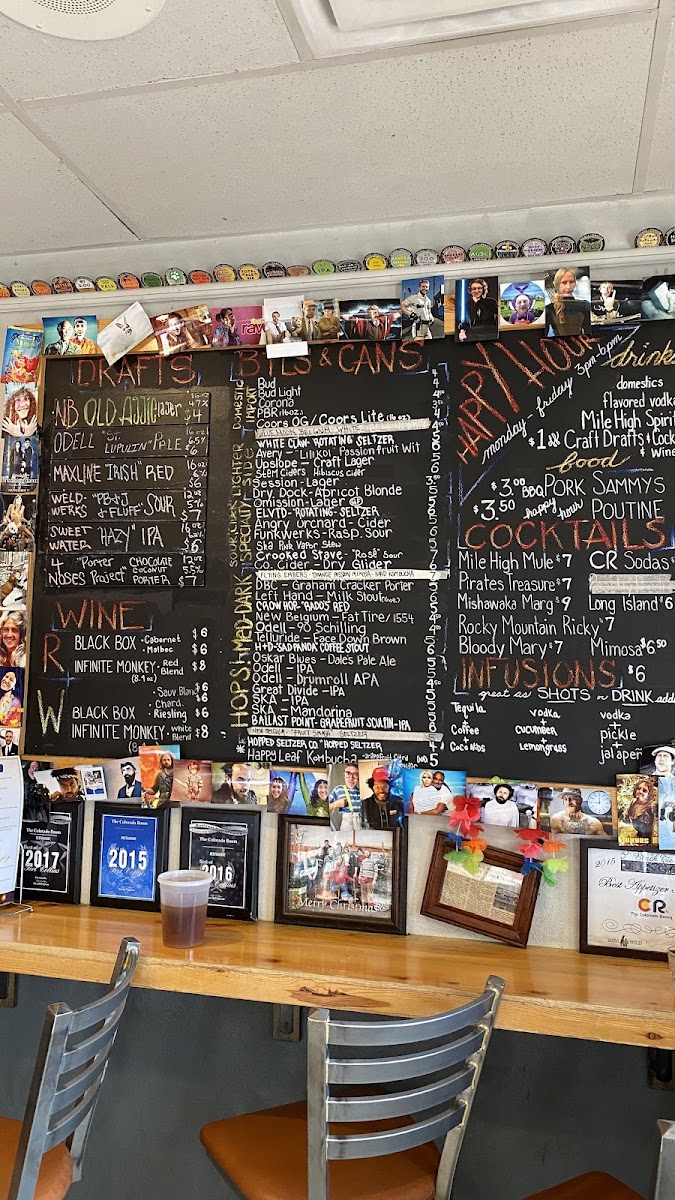 DRAFTS
NB OLD AGGIE lager
16oz
4.7%
$4
ODELL "St. LUPULIN" PALE
16oz
6.5%
$6
MAXLINE IRISH" RED
16oz
$6
WELD-WERKS "PB+J + FLUFF" SOUR
12oz
$7
SWEET WATER "HAZY" IPA
16oz
$6
4 NOSES "Porter Project" CHOCOLATE COCONUT PORTER
12oz
5.5%
$7
WINE
R
BLACK BOX - Cabernet $6
- Malbec $6
INFINITE MONKEY - Red Blend $8
(8.4oz)
W
- Sauv Blanc $6
- Chard. $6
BLACK BOX - Riesling $6
INFINITE MONKEY - White Blend $8
BTLS & CANS
DOMESTIC IMPORT
LIGHTER
SOUR CIDER SPECIALTY SIDE
MED-DARK
HOPS!
Bud
Bud Light
Corona
PBR (16oz.)
Coors OG / Coors Lite (16 oz)
WHITE CLAW - ROTATING SELTZER
Avery - Lilikoi Passionfruit Wit
Upslope - Craft Lager
STEM CIDERS Hibiscus cider
Session - Lager
Dry Dock - Apricot Blonde
Omission - Lager GF
ELVTD - ROTATING - SELTZER
Angry Orchard - Cider
Funkwerks - Rasp. Sour
Ska Pink Vapor Stew
Crooked Stave - "Rosé" Sour
Co. Cider - Dry Glider
DBC - Graham Cracker Porter
Left Hand - Milk Stout
CROW HOP - "RADO'S RED
New Belgium - Fat Tire / 1554
Odell - 90 Schilling
Telluride - Face Down Brown
H+D - SAD PANDA COFFEE STOUT
Oskar Blues - Dale's Pale Ale
Odell - IPA
Odell - Drumroll APA
Great Divide - IPA
SKA - IPA
SKA - Mandarina
BALLAST POINT - GRAPEFRUIT SCULPIN - IPA
HOPPED SELTZER CO. HOPPED SELTZER
Happy Leaf Kombucha
HAPPY HOUR
monday - friday 3pm-6pm
drinks
domestics
flavored vodka
Mile High Spirit
& Wine
Craft Drafts + Cock
food
$3.00 BBQ PORK SAMMYS
$3.50 happy hour POUTINE
COCKTAILS
Mile High Mule $7
CR Sodas
Pirates Treasure $7
Mishawaka Marg $9
Long Island $6
Rocky Mountain Ricky $7
Bloody Mary $7
Mimosa $6.50
INFUSIONS $6
great as SHOTS or DRINK add
Tequila + Coffee + Coco nibs
vodka + cucumber + Lemongrass
vodka + pickle + jalapeñ
The Colorado Room
2017
The Colorado Room
2015
Fort Collins
The Colorado Room
Best of
2016
Merry Christmas
2015
Best Appetizer
CR
The Colorado Room